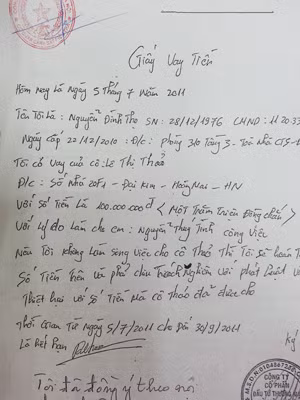 Giấy Vay Tiền
Hôm nay Là Ngày 5 Tháng 7 Năm 2011
Tên Tôi Là : Nguyễn Đình Thọ SN : 28/12/1976 CMND : 112033
Ngày Cấp 22/12/2010 : Đ/c : phòng 310 Tầng 3 - Toà nhà CT5
Tôi có vay của cô : Lê Thị Thoả
Đ/c : Số Nhà 20F1 - Đại Kim - Hoàng Mai - HN
Với số Tiền Là 100.000.000đ < Một Trăm Triệu Đồng chẵn >
Với Lý do Làm cho em : Nguyễn Thuỷ Tính công Việc
Nếu Tôi không Làm song việc cho cô Thoả Thì Tôi sẽ hoàn
Số Tiền Trên và phải chịu Trách Nghiệm với pháp Luật và
Thiệt hại với số Tiền mà cô Thoả đã đưa cho
Thời gian Từ Ngày 5/7/2011 cho Đến 30/9/2011
Là Hết Hạn
Ký
CÔNG TY
CỔ PHẦN
ĐẦU TƯ THƯƠNG
Tôi đã đồng ý theo nội